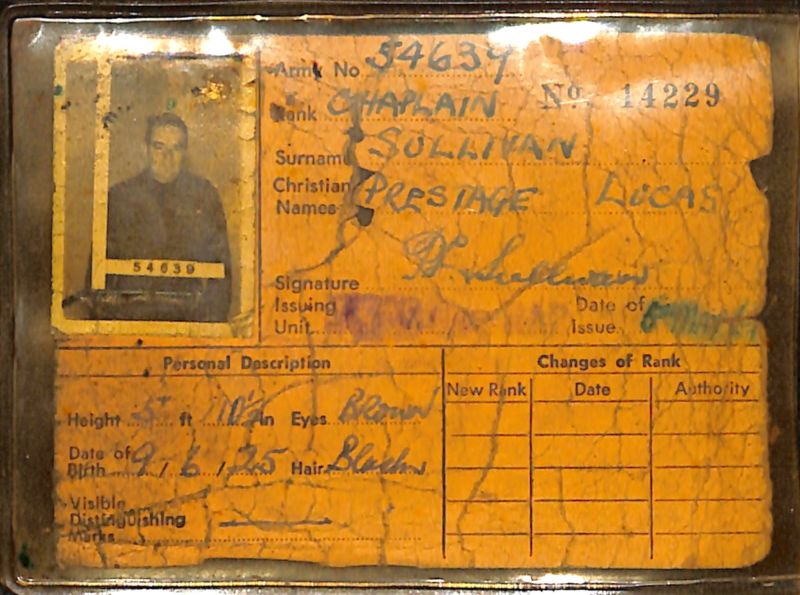 Army No 54639
Rank CHAPLAIN No. 14229
Surname SULLIVAN
Christian Names PRESTAGE LUCAS
Signature P L Sullivan
Issuing Unit
Date of Issue
54639
Personal Description
Height 5 ft 10½ in Eyes Brown
Date of Birth 9/6/25 Hair Black
Visible Distinguishing Marks
Changes of Rank
New Rank Date Authority